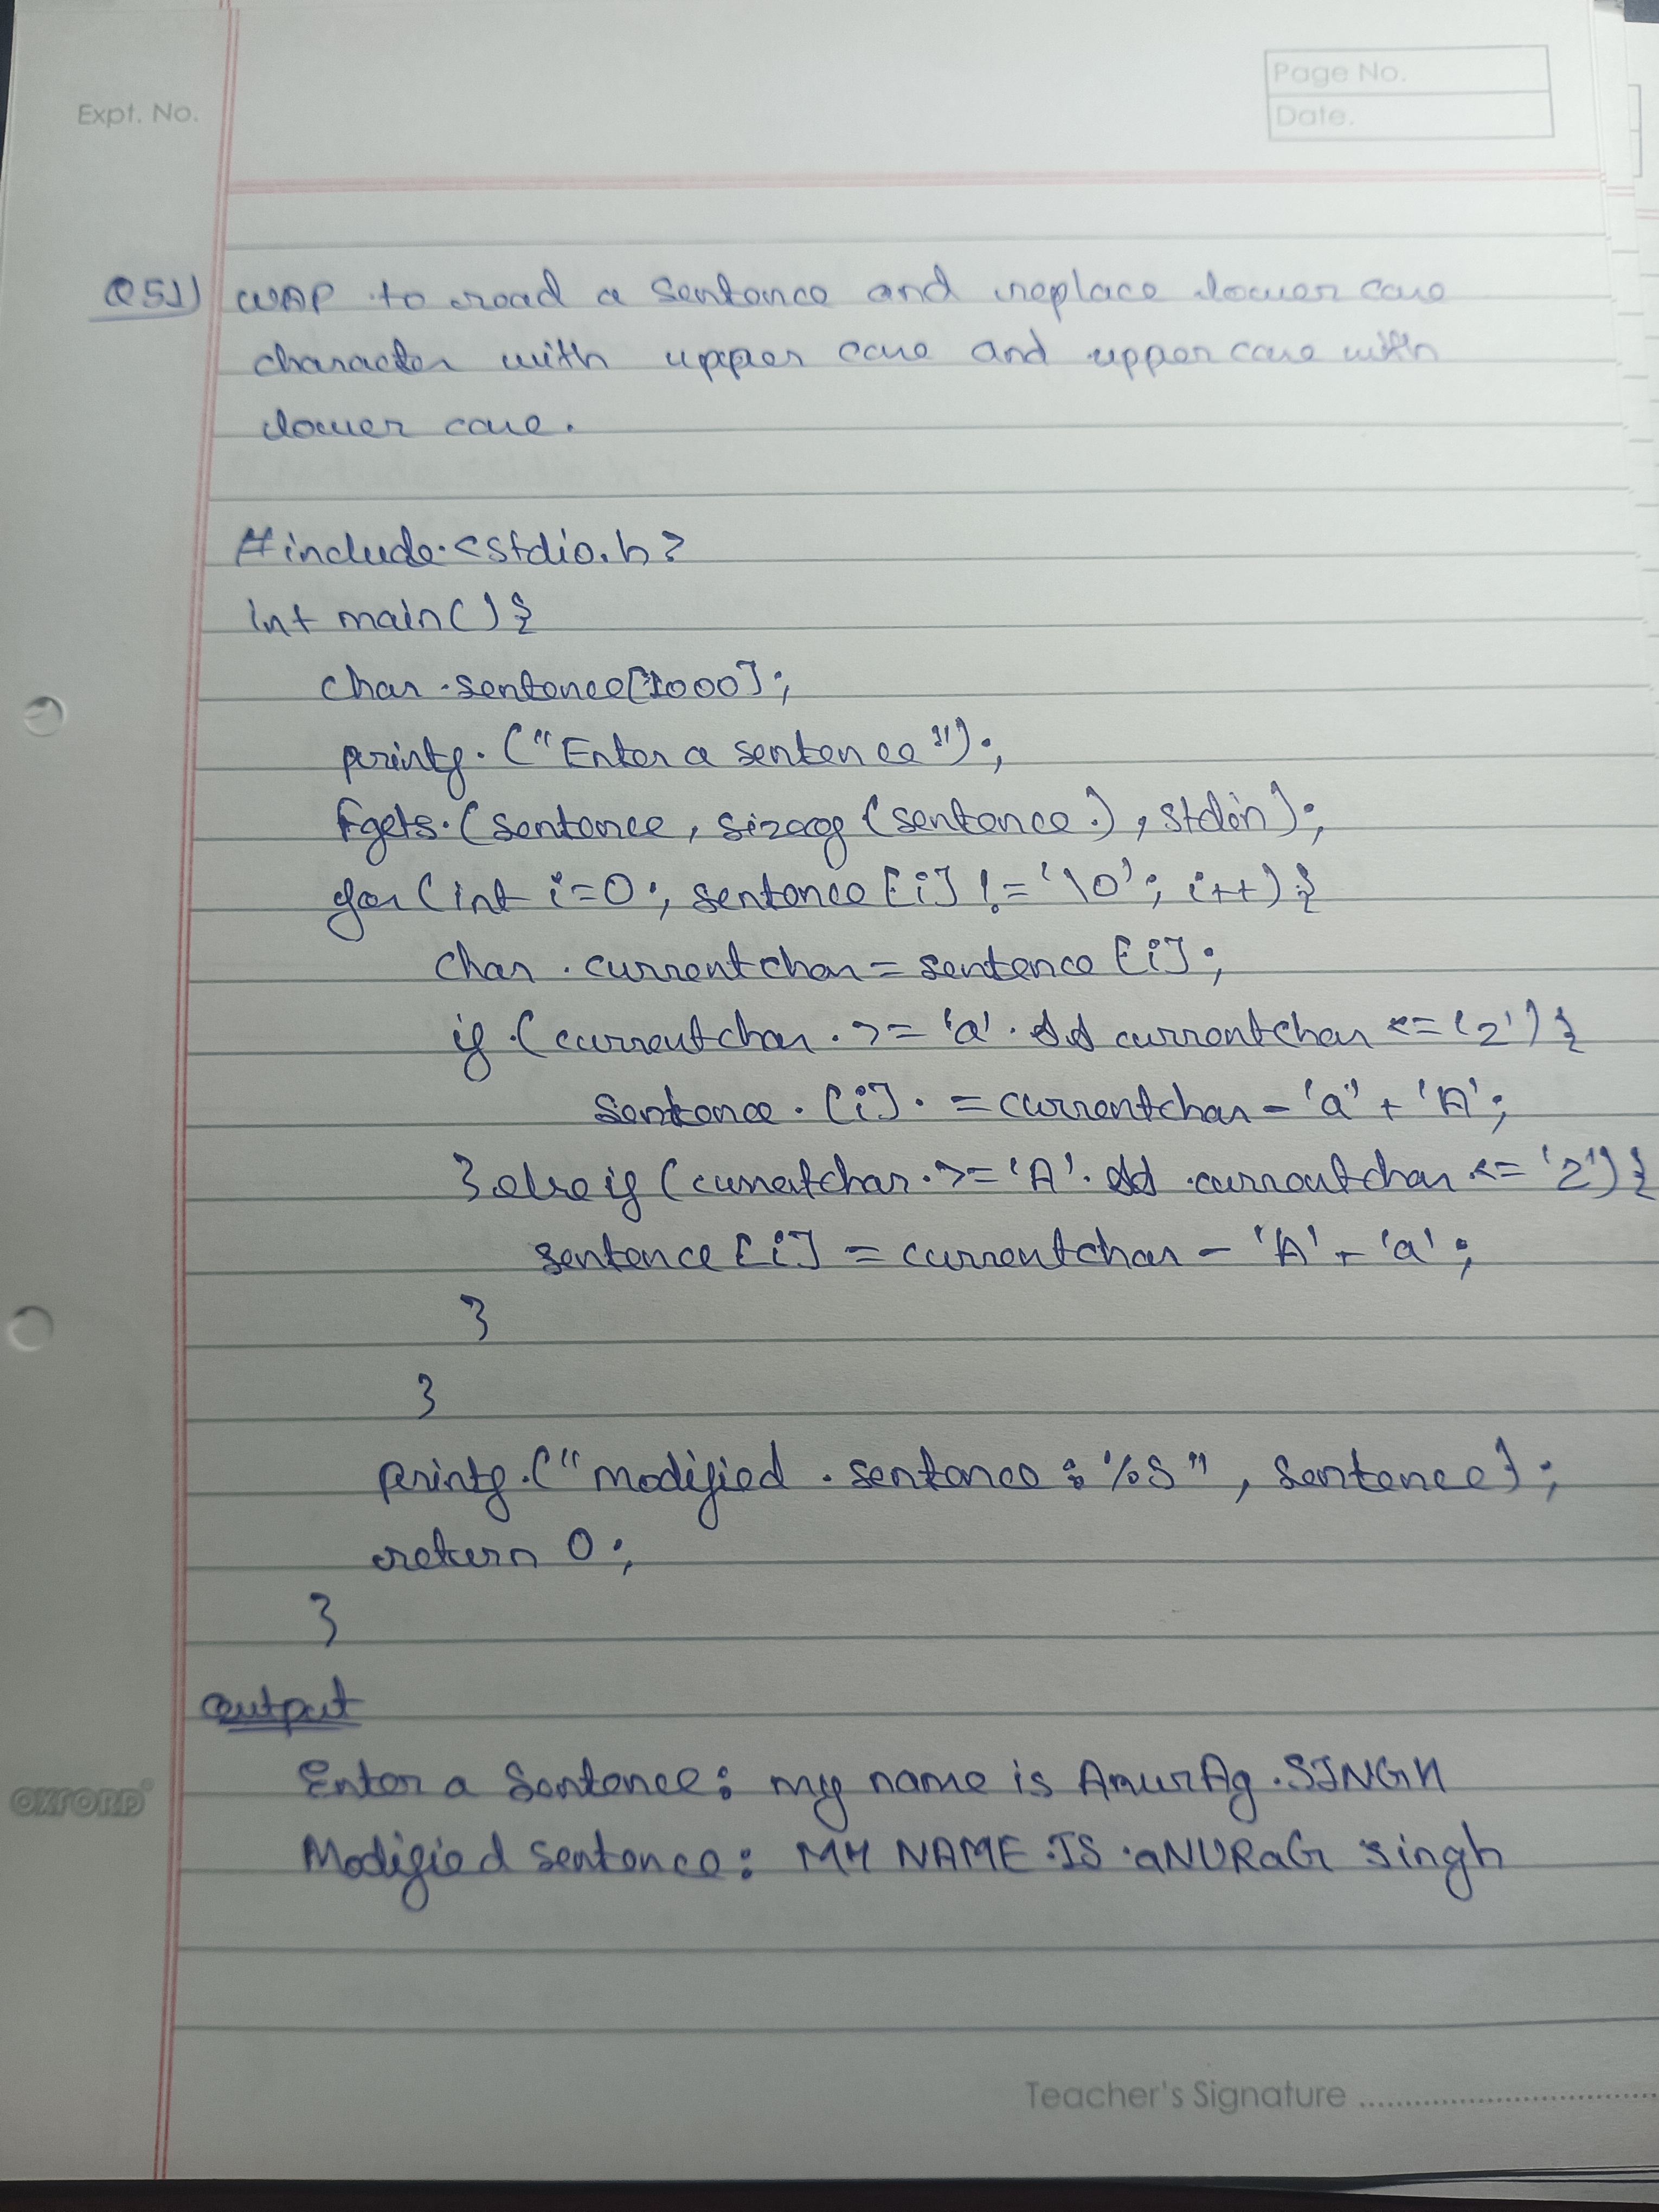 Expt. No.
Page No.
Date.
Q51) WAP to read a sentence and replace lower case
character with upper case and upper case with
lower case.
#include <stdio.h>
int main(){
char sentence[1000];
printf ("Enter a sentence");
fgets (sentence, sizeof (sentence), stdin);
for (int i=0; sentence [i] != '\0'; i++) {
char currentchar = sentence [i];
if (currentchar >= 'a' && currentchar <= 'z') {
sentence [i] = currentchar - 'a' + 'A';
} else if (currentchar >= 'A' && currentchar <= 'Z') {
sentence [i] = currentchar - 'A' + 'a';
}
}
printf ("modified sentence: %s", sentence);
return 0;
}
Output
Enter a Sentence: my name is AnurAg SINGH
Modified Sentence: MY NAME IS aNURaG singh
OXFORD
Teacher's Signature ..............................